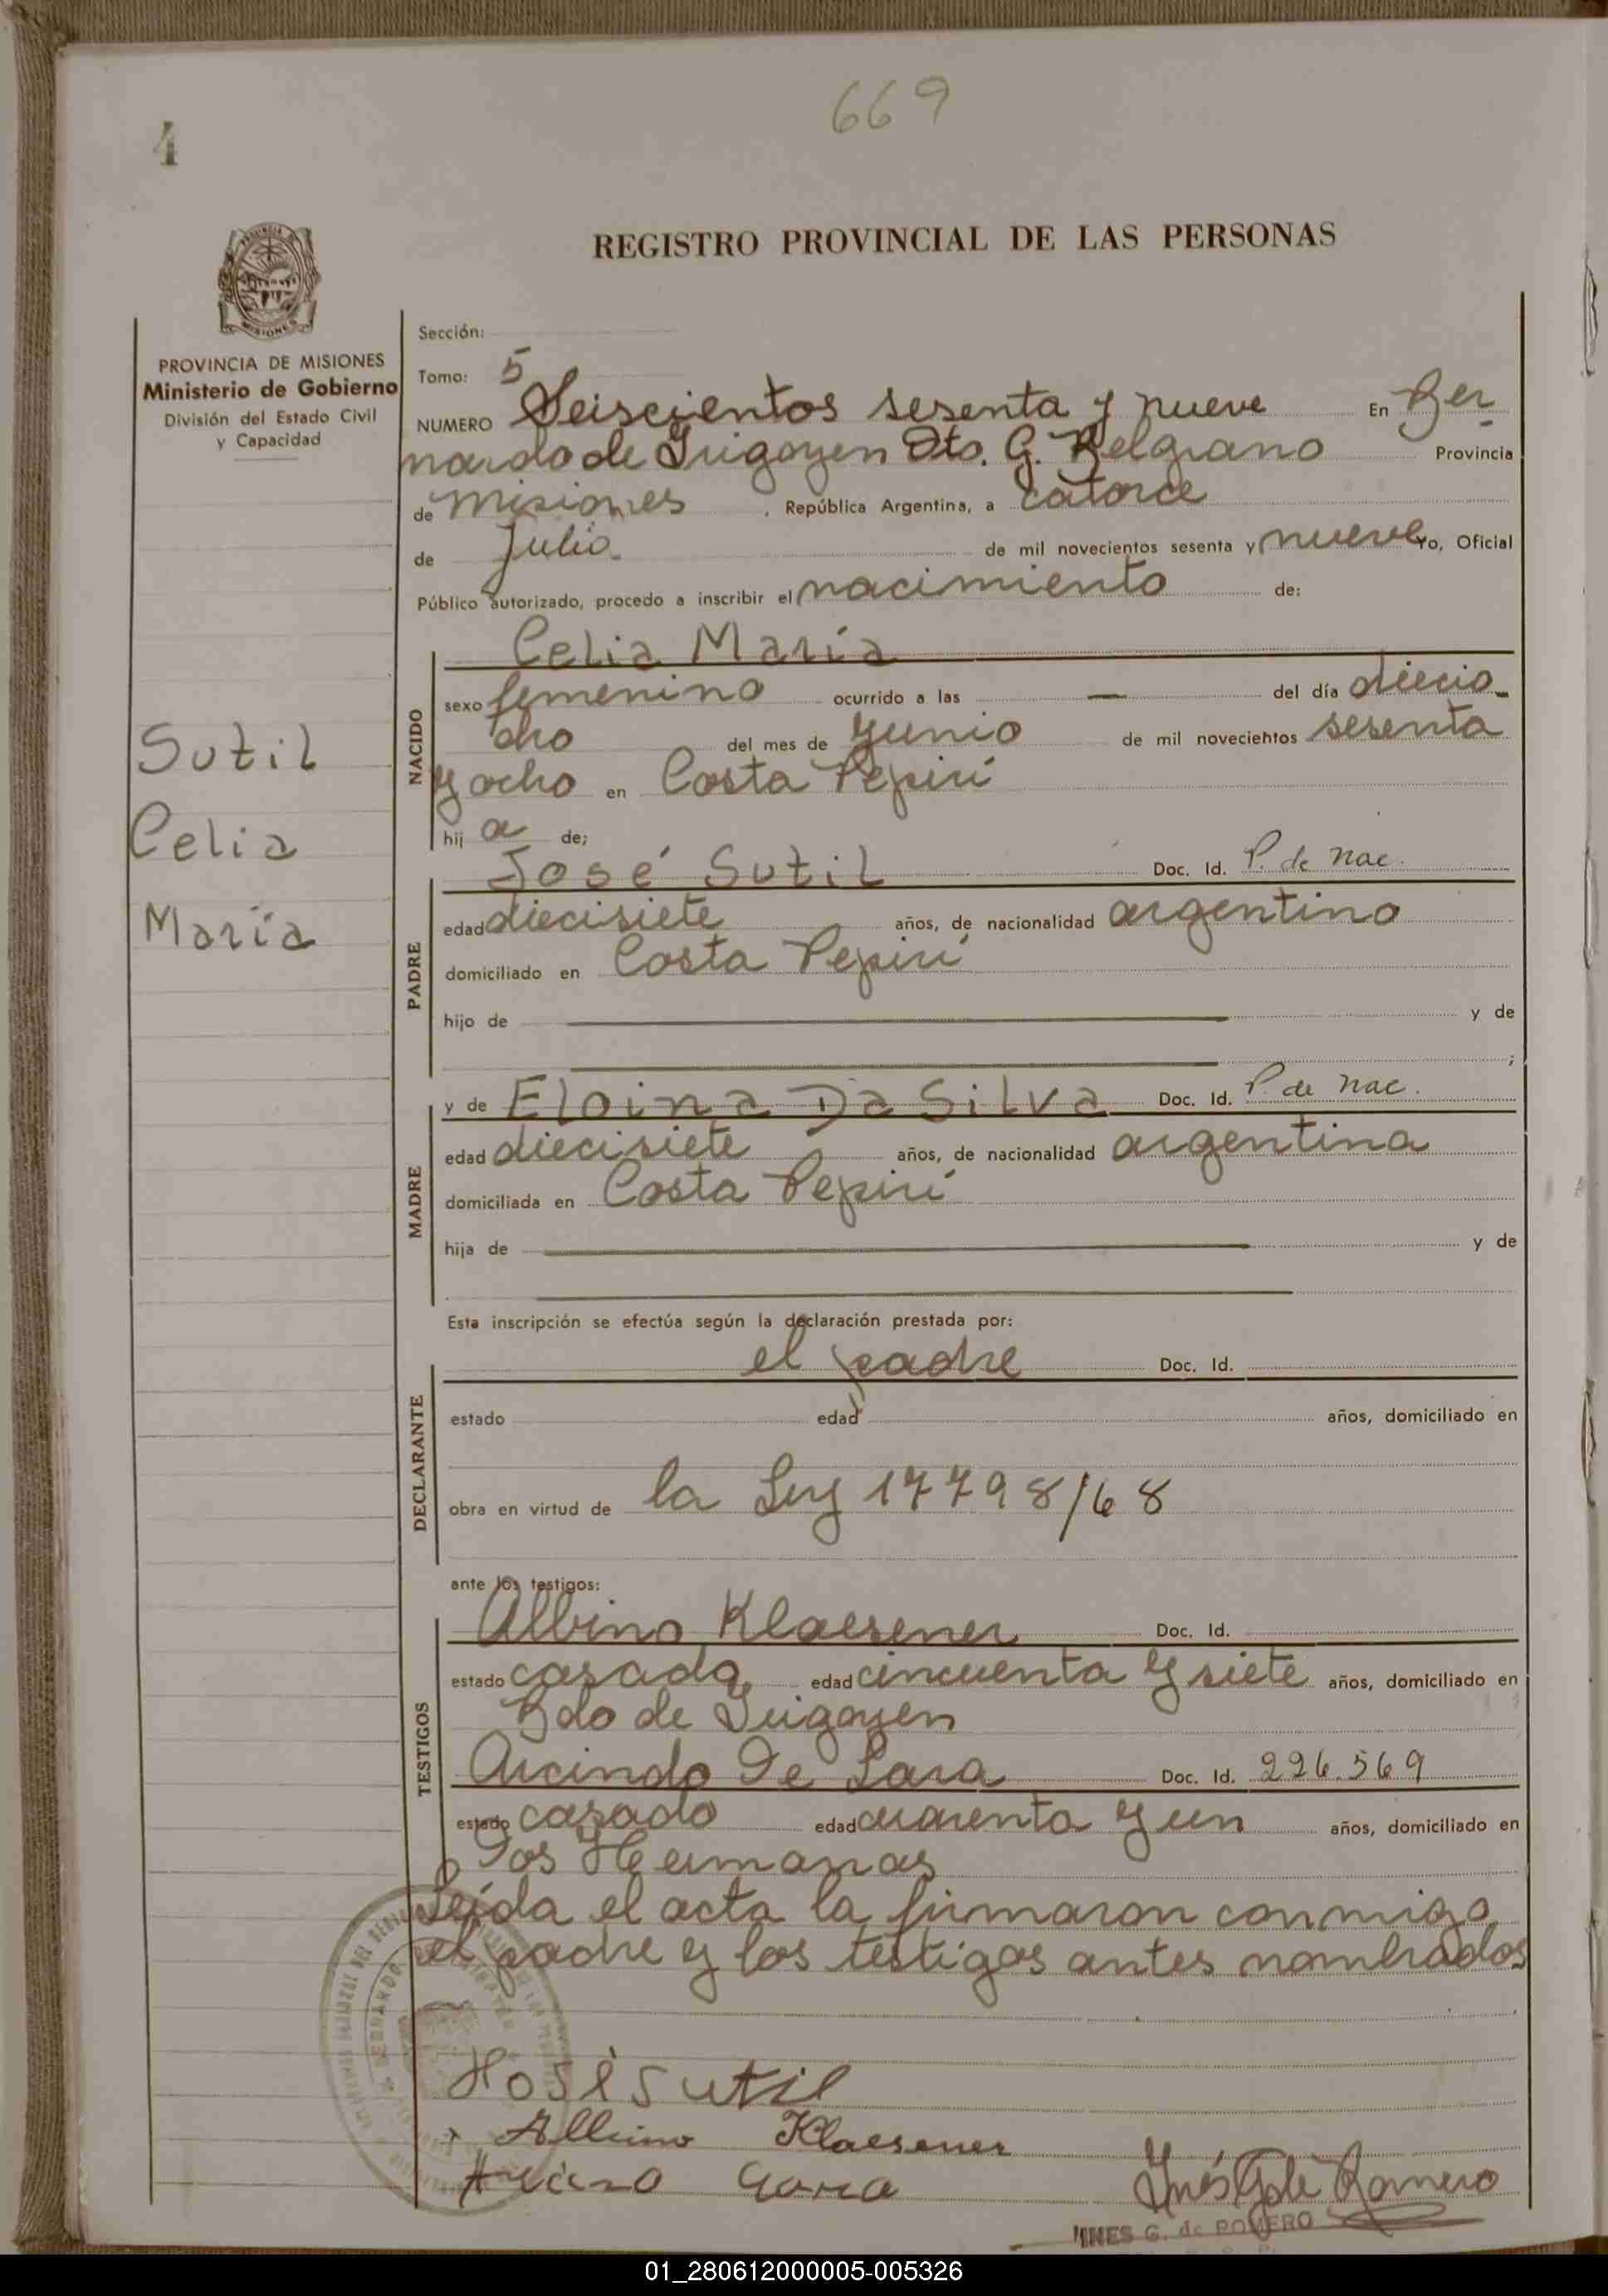 669
4
REGISTRO PROVINCIAL DE LAS PERSONAS
MISIONES
PROVINCIA DE MISIONES
Ministerio de Gobierno
División del Estado Civil
y Capacidad
Sutil
Celia
María
Sección:
Tomo: 5
NUMERO Seiscientos sesenta y nueve En Ber
nardo de Irigoyen Dto. G. Belgrano Provincia
de Misiones, República Argentina, a catorce
de Julio de mil novecientos sesenta y nueve Yo, Oficial
Público autorizado, procedo a inscribir el nacimiento de:
NACIDO
Celia María
sexo femenino ocurrido a las — del día diecio-
cho del mes de Junio de mil novecientos sesenta
y ocho en Costa Pepirí
hij a de;
PADRE
José Sutil Doc. Id. P. de Nac.
edad diecisiete años, de nacionalidad argentino
domiciliado en Costa Pepirí
hijo de y de
;
MADRE
y de Eloina Da Silva Doc. Id. P. de Nac.
edad diecisiete años, de nacionalidad argentina
domiciliada en Costa Pepirí
hija de y de
Esta inscripción se efectúa según la declaración prestada por:
DECLARANTE
el padre Doc. Id.
estado edad años, domiciliado en
obra en virtud de la Ley 17798/68
ante los testigos:
TESTIGOS
Albino Klaesener Doc. Id.
estado casado edad cincuenta y siete años, domiciliado en
Bdo de Irigoyen
Arcindo De Lara Doc. Id. 226.569
estado casado edad cuarenta y un años, domiciliado en
Dos Hermanas
Leída el acta la firmaron conmigo
el padre y los testigos antes nombrados
José Sutil
Albino Klaesener
Lara
Inés G de Romero
INES G. de ROMERO
01_280612000005-005326